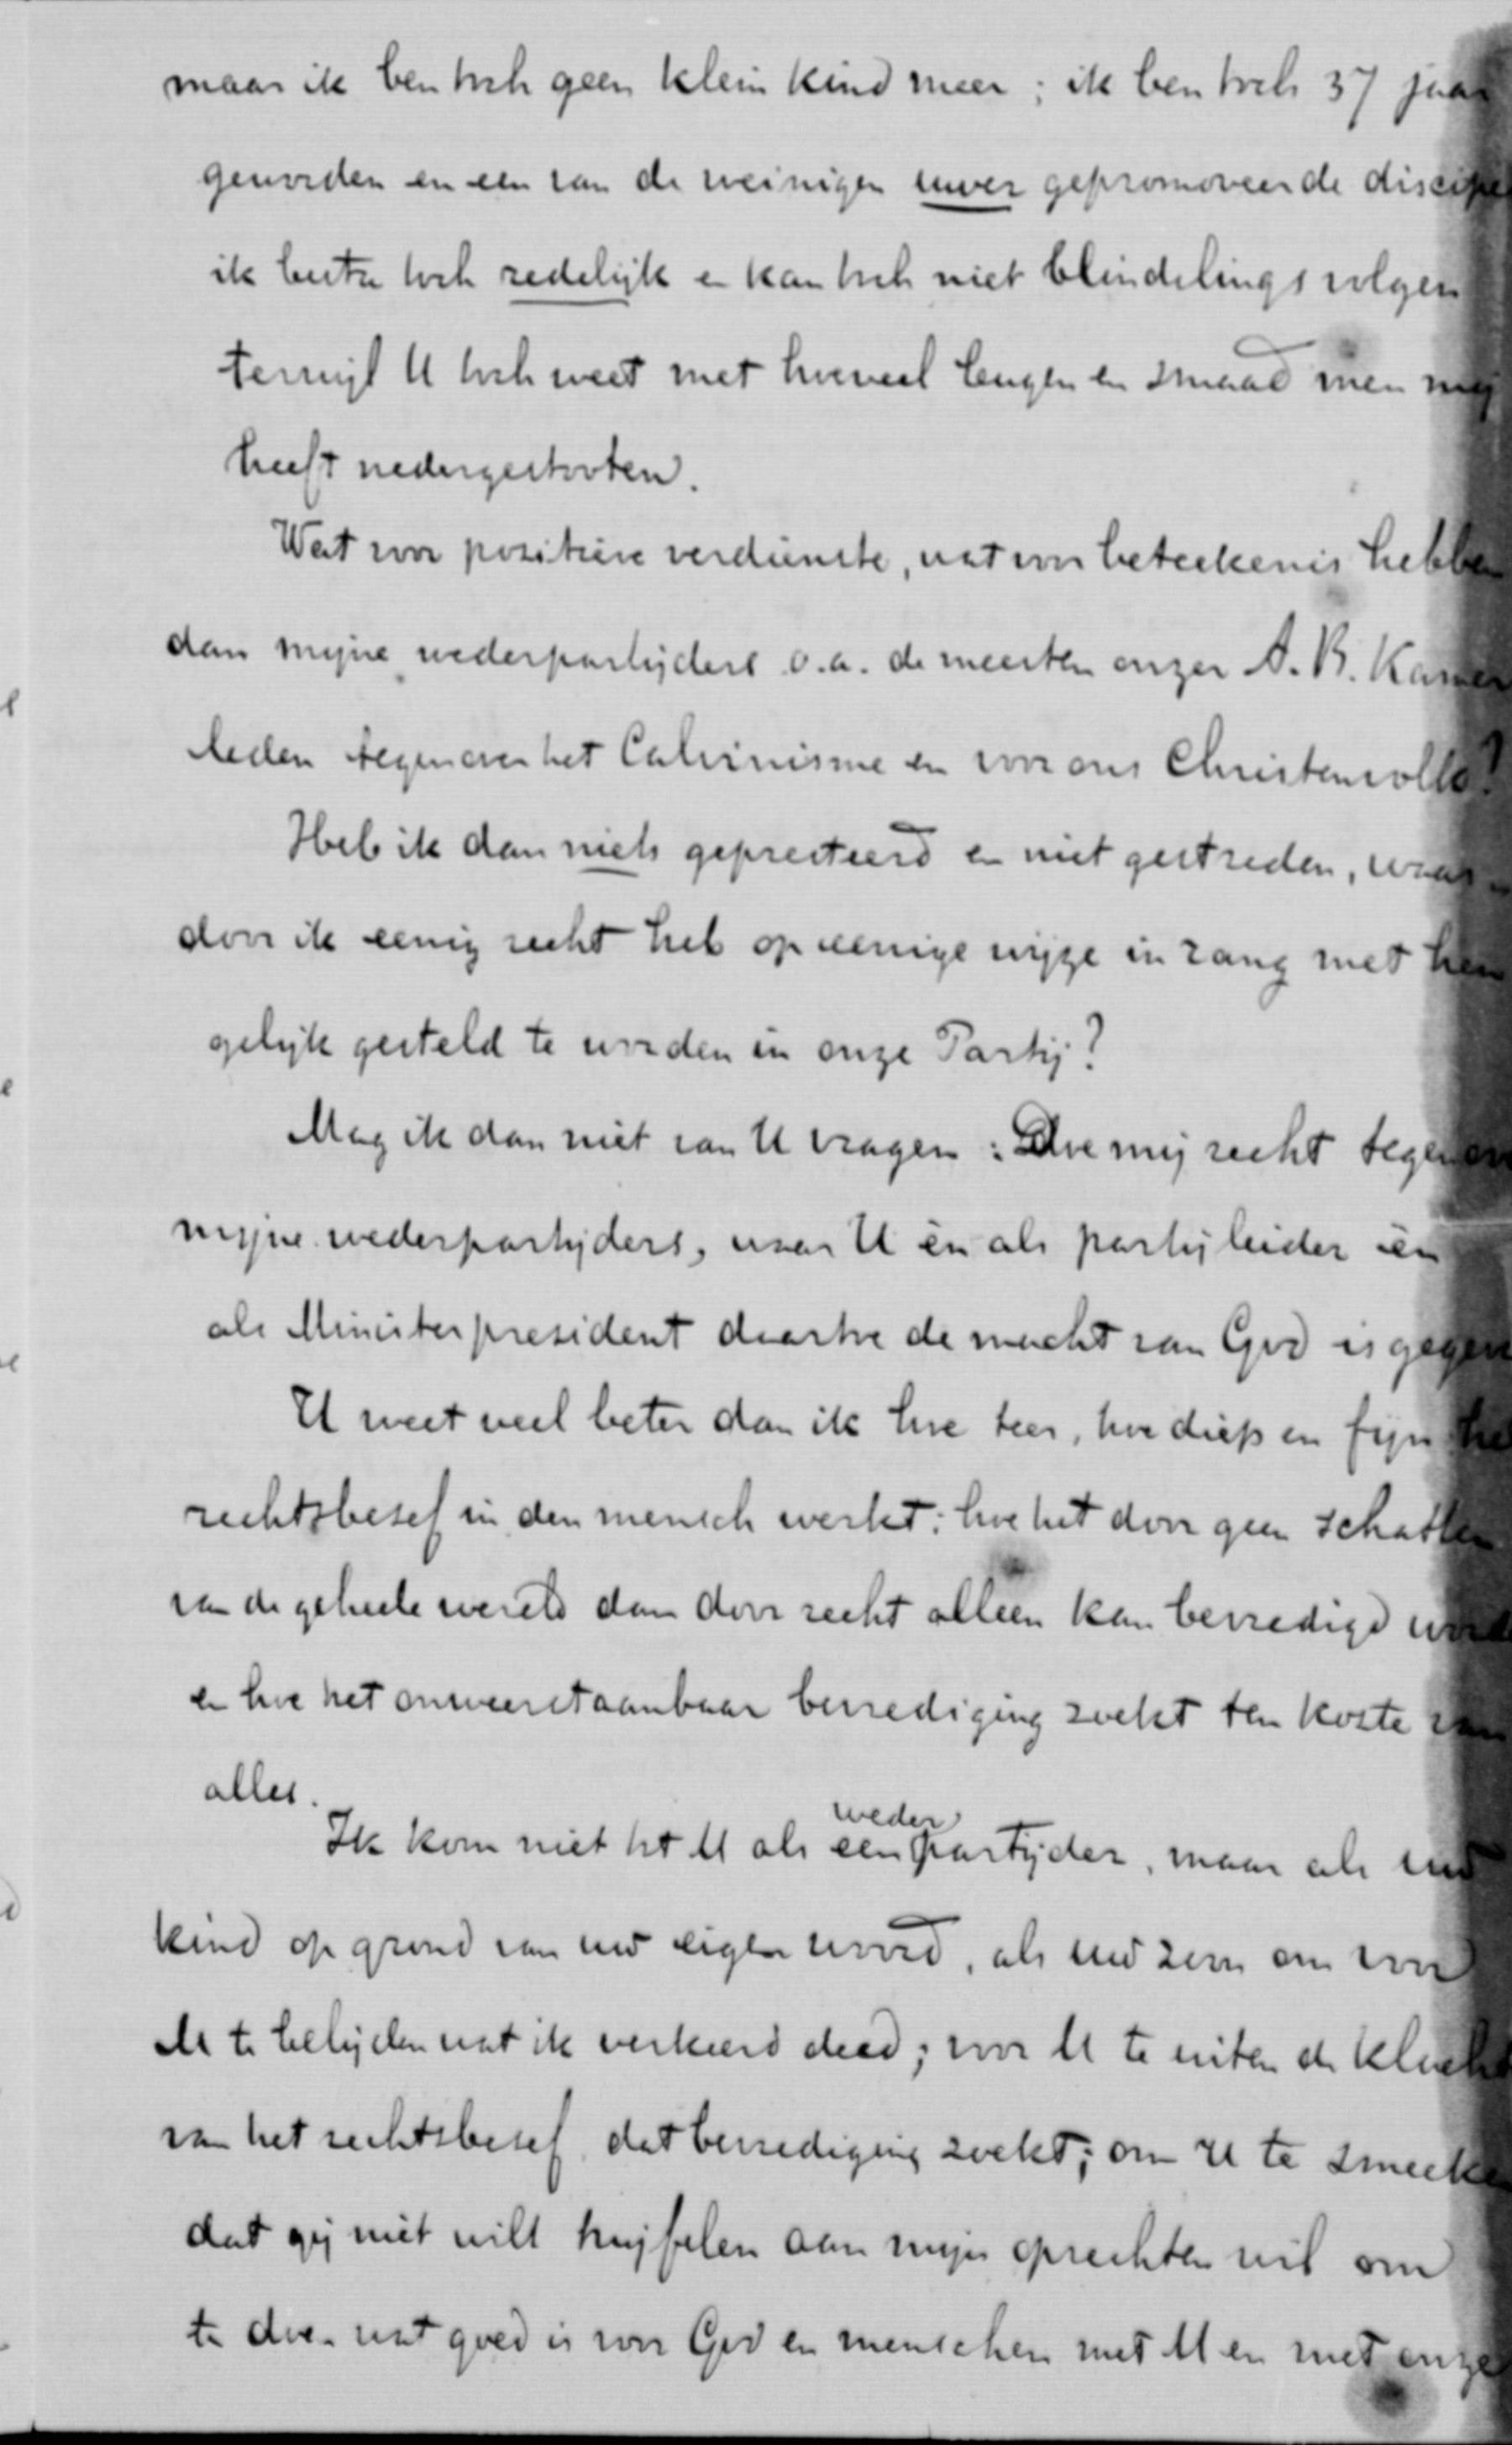 maar ik ben toch geen klein kind meer; ik ben toch 37 jaar
geworden en een van de weinigen uwer gepromoveerde discipe
ik besta toch redelijk en kan toch niet blindelings volgen
terwijl U toch weet met hoeveel leugen en smaad men mij
heeft nedergestooten.
Wat voor positieve verdienste, wat voor beteekenis hebben
dan mijne wederpartijders o.a. de meesten onzer A.R. Kamer
leden tegenover het Calvinisme en voor ons Christenvolk?
Heb ik dan niets gepresteerd en niet gestreden, waar-
door ik eenig recht heb op eenige wijze in rang met hen
gelijk gesteld te worden in onze Partij?
Mag ik dan niet van U vragen: Doe mij recht tegenover
mijne wederpartijders, waar U èn als partijleider èn
als Ministerpresident daartoe de macht van God is gegeven
U weet veel beter dan ik hoe teer, hoe diep en fijn het
rechtsbesef in den mensch werkt: hoe het door geen schatten
van de geheele wereld dan door recht alleen kan bevredigd worde
en hoe het onweerstaanbaar bevrediging zoekt ten koste van
alles.
Ik kom niet tot U als een wederpartijder, maar als uw
kind op grond van uw eigen woord, als uw zoon om voor
U te belijden wat ik verkeerd deed; voor U te uiten de klacht
van het rechtsbesef, dat bevrediging zoekt; om U te smeeken
dat gij niet wilt twijfelen aan mijn oprechten wil om
te doen wat goed is voor God en menschen met U en met onze